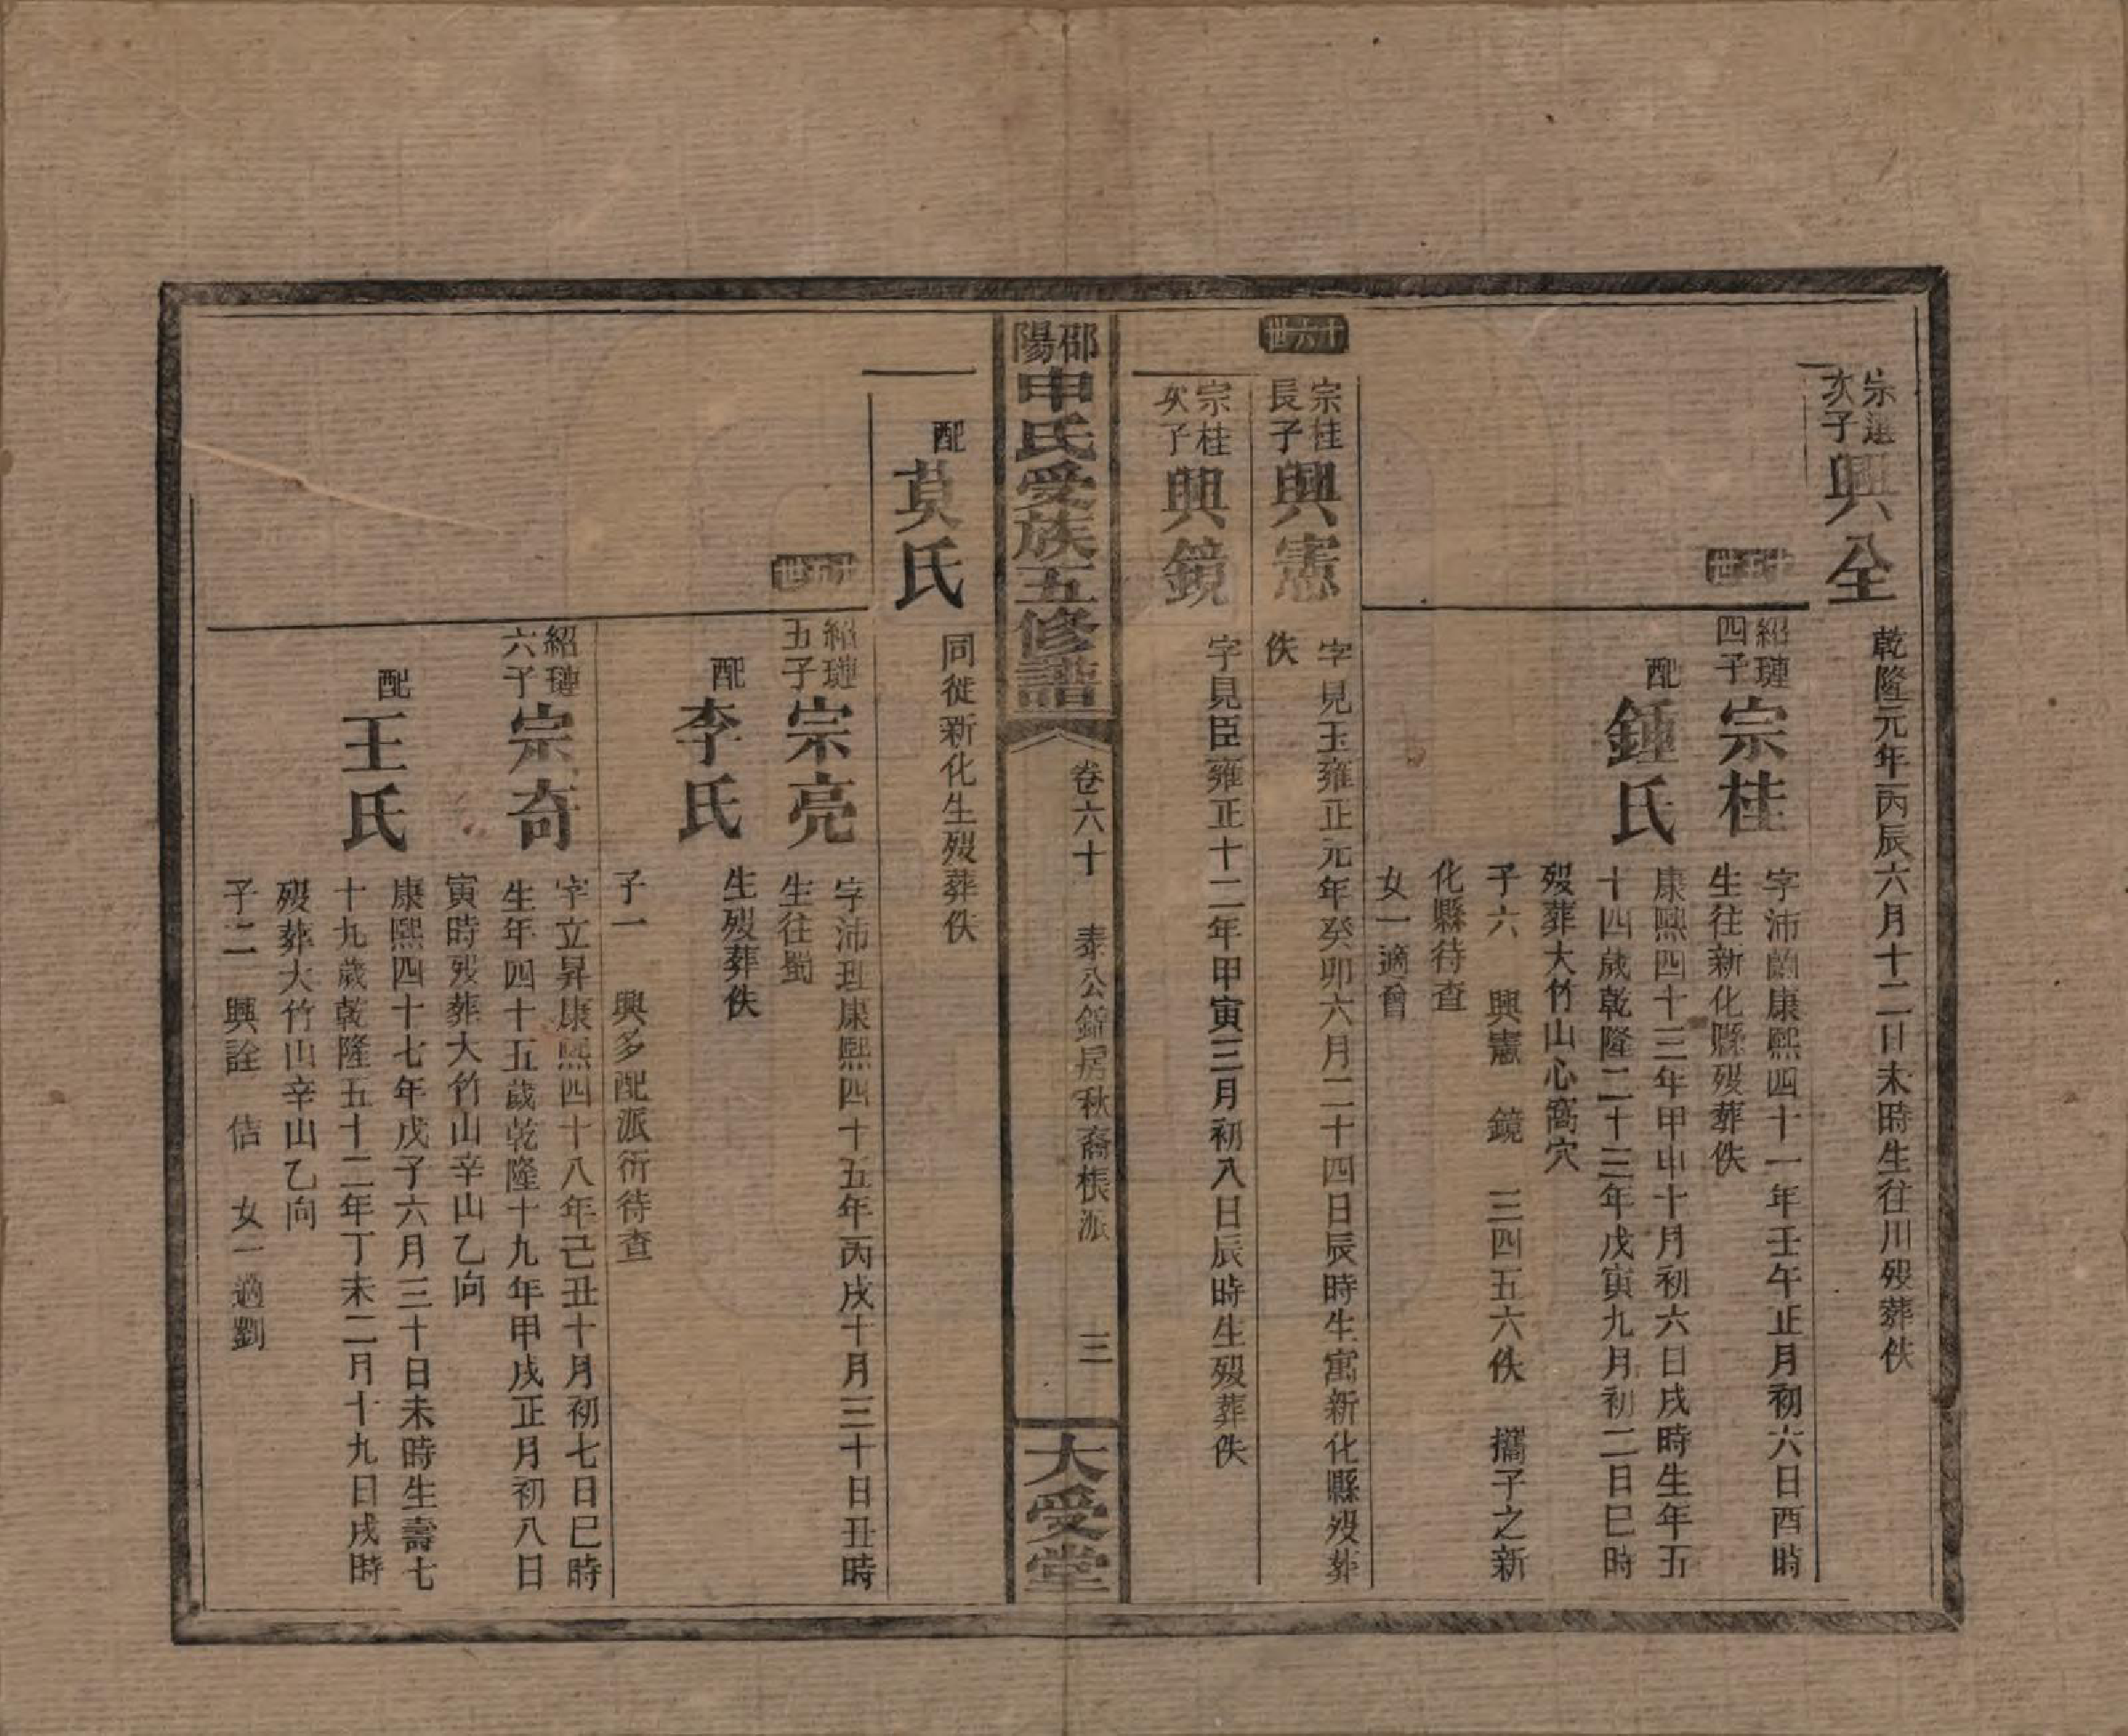 宗選
次子
興全
乾隆元年丙辰六月十二日未時生往川歿葬佚
十五世
紹璉
四子
宗桂
字沛蘭康熙四十一年壬午正月初六日酉時
生往新化縣歿葬佚
配
鍾氏
康熙四十三年甲申十月初六日戌時生年五
十四歲乾隆二十三年戊寅九月初二日巳時
歿葬大竹山心窩穴
子六 興憲 鏡 三四五六佚 攜子之新
化縣待查
女一適曾
十六世
宗桂
長子
興憲
字見玉雍正元年癸卯六月二十四日辰時生寓新化縣歿葬
佚
宗桂
次子
興鏡
字見臣雍正十二年甲寅三月初八日辰時生歿葬佚
邵陽
申氏受族五修譜
卷六十
泰公 房秋裔棖派
三
大受堂
配
莫氏
同徙新化生歿葬佚
十五世
紹璉
五子
宗亮
字沛 康熙四十五年丙戌十月三十日丑時
生往蜀
配
李氏
生歿葬佚
子一 興多配派衍待查
紹璉
六子
宗奇
字立昇康熙四十八年己丑十月初七日巳時
生年四十五歲乾隆十九年甲戌正月初八日
寅時歿葬大竹山辛山乙向
配
王氏
康熙四十七年戊子六月三十日未時生壽七
十九歲乾隆五十二年丁未二月十九日戌時
歿葬大竹山辛山乙向
子二 興詮 佶 女一適劉